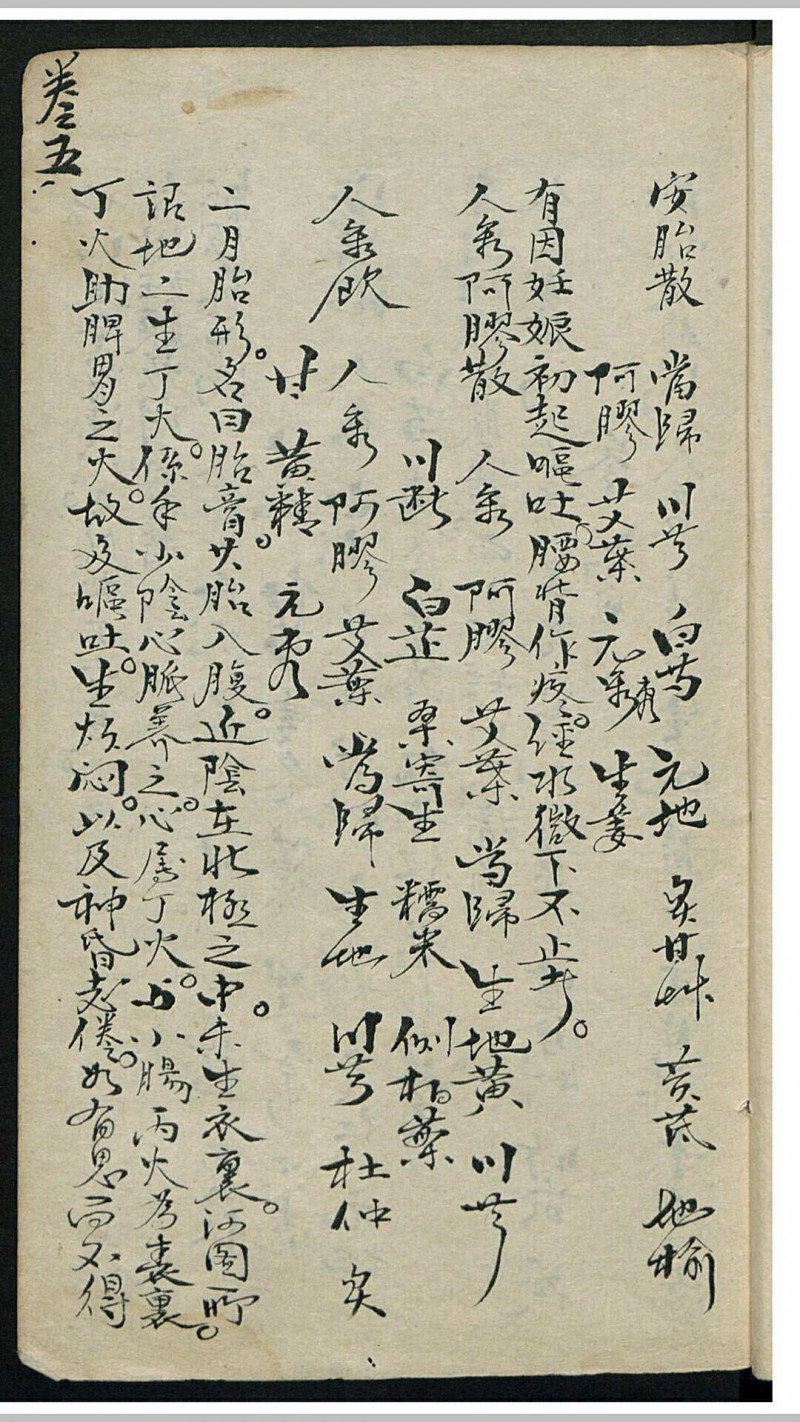 安胎散　當歸　川芎　白芍　元地　炙甘艸　黄芪　地榆
阿膠　艾葉　元　生姜
有因妊娠初起嘔吐腰背作疼。經水微下不止者。
人參阿膠散　人參　阿膠　艾葉　當歸　生地黄　川芎
川断　白芷　桑寄生　糯米　側柏葉
人參飲　人參　阿膠　艾葉　當歸　生地　川芎　杜仲　炙
甘　黄精　元
二月胎形。名曰胎膏。其胎入腹。近陰在北極之中。未生衣裏。河圖所
謂地二生丁火。係手少陰心脈養之。心属丁火。与小腸丙火為表裏。
丁火助脾胃之火。故发嘔吐。生煩悶。以及神昏志倦。如有思而不得
卷五